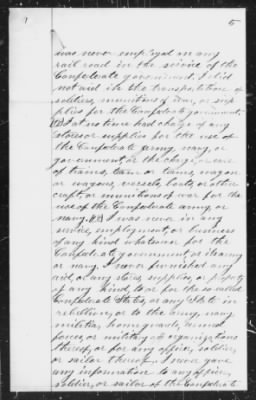 5
was never employed on any
rail road in the service of the
Confederate government. I did
not aid in the transportation of
soldiers, munitions of war, or sup
plies for the Confederate government.
I at no time had charge of any
stores or supplies for the use of
the Confederate army, navy, or
government, or the charge or care
of trains, team or teams, wagon
or wagons, vessels, boats, or other
craft, or munitions of war for the
use of the Confederate army or
navy. I was never in any
service, employment, or business
of any kind whatever for the
Confederate government, or its army
or navy. I never furnished any
aid, or any stores, supplies, or property
of any kind, to or for the so called
Confederate States, or any State in
rebellion, or to the army, navy
militia, home guards, armed
forces, or military organizations
thereof, or for any officer, soldier,
or sailor thereof. I never gave
any information to any officer,
soldier, or sailor of the Confederate